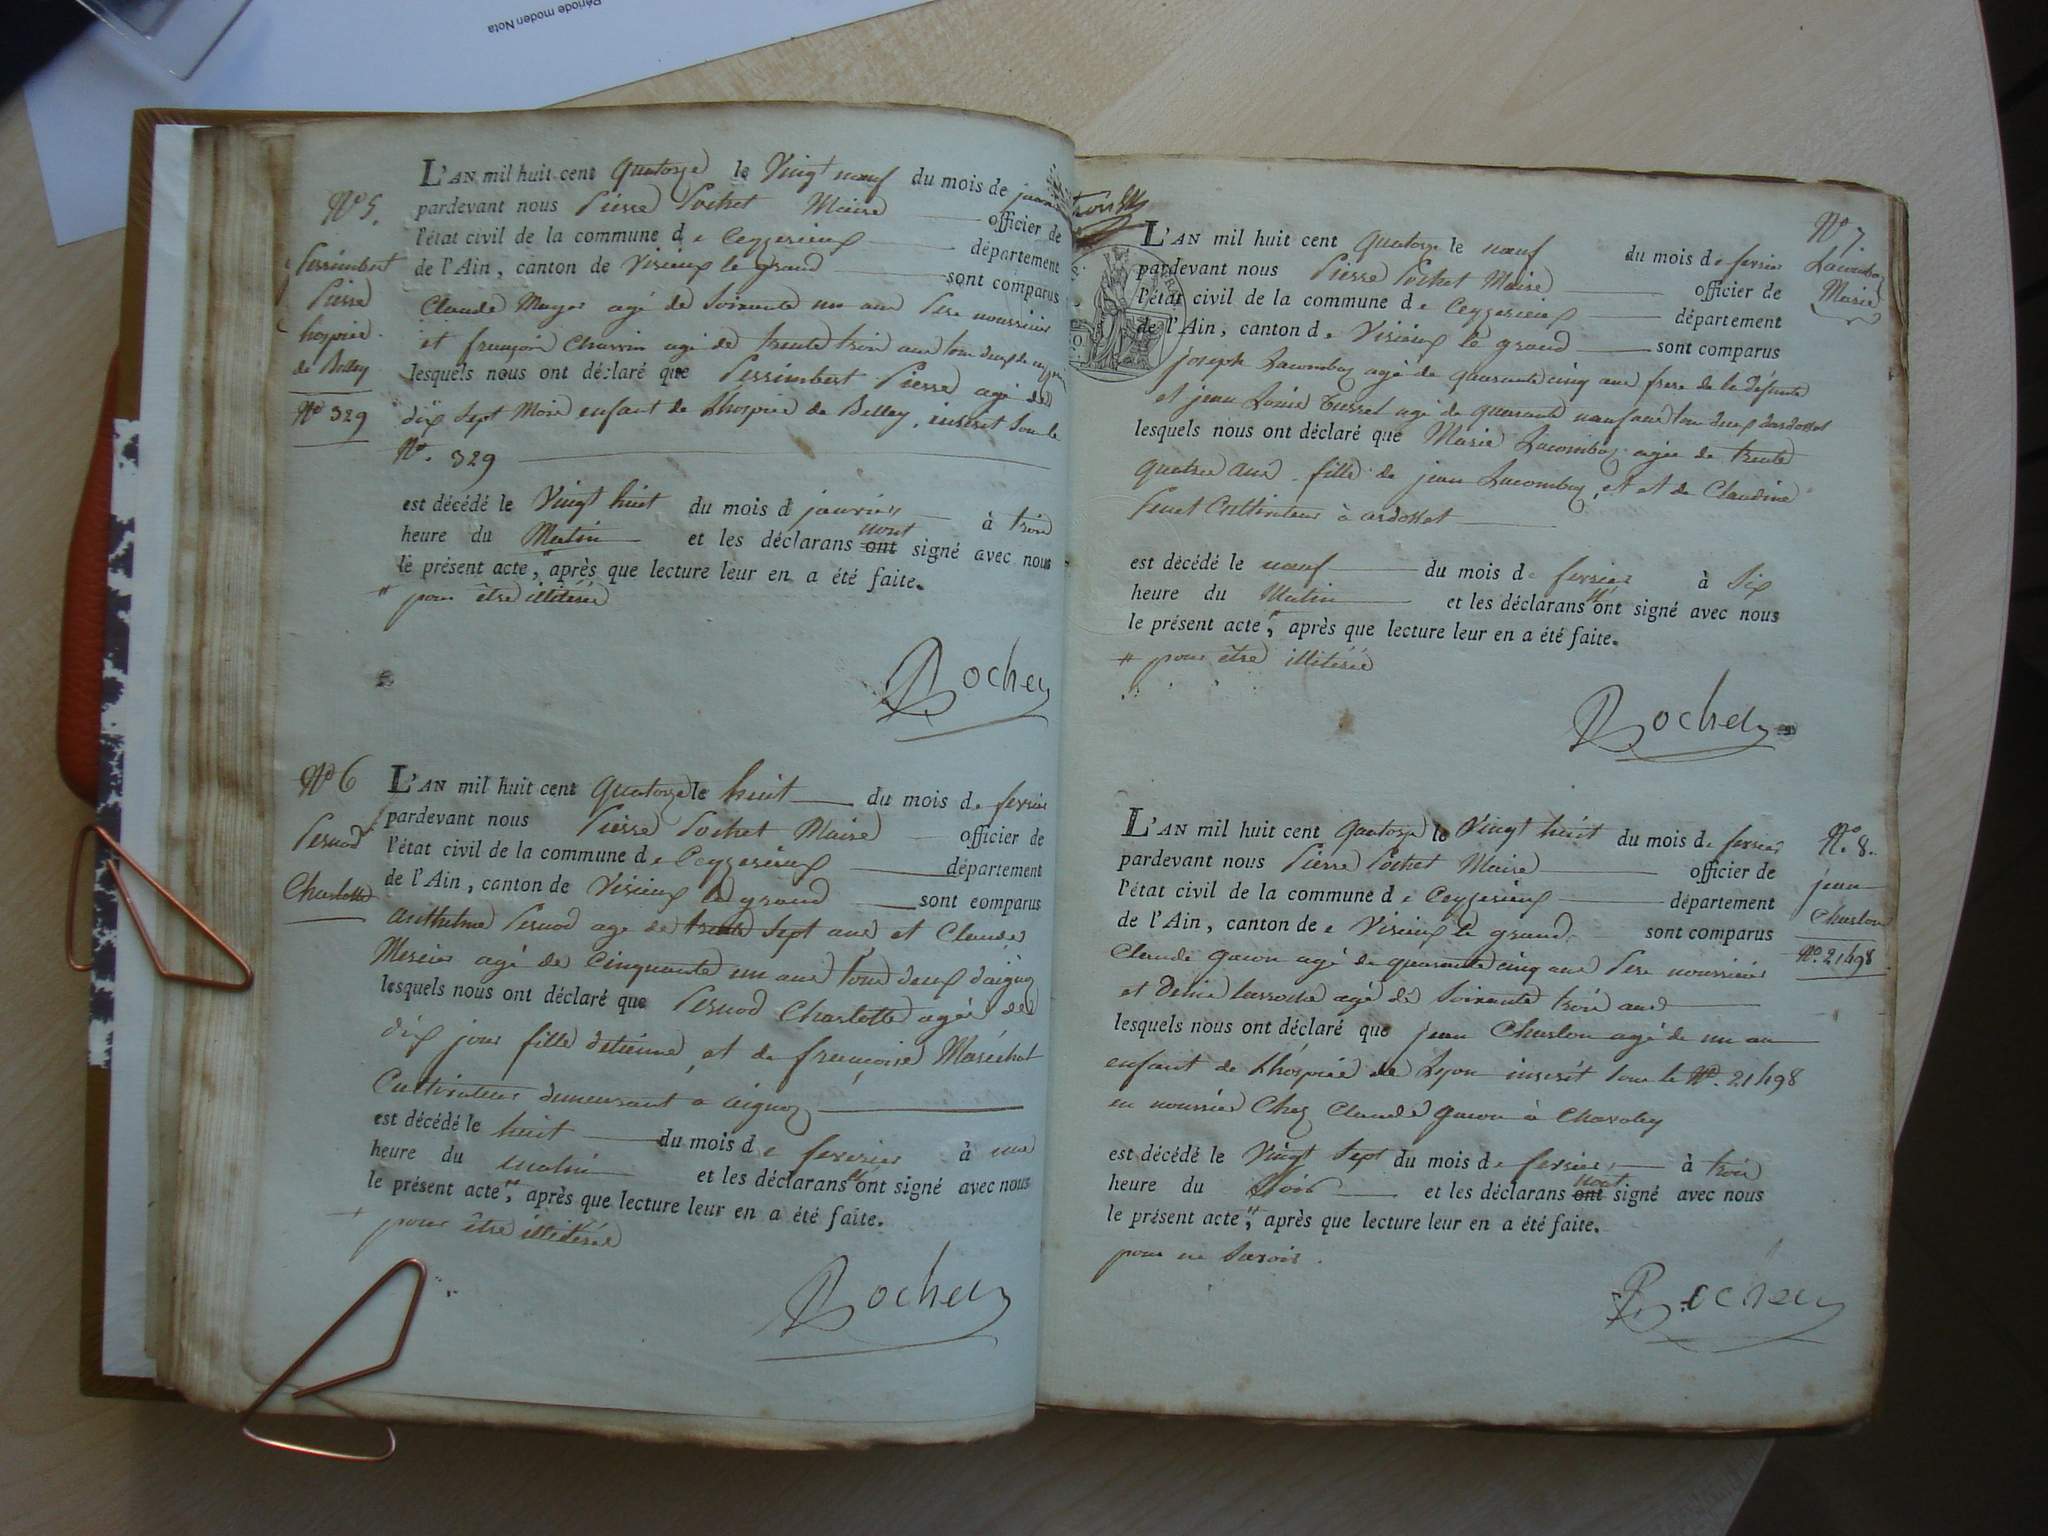 Période moden Nota
L'AN mil huit cent quatorze le Vingt neuf du mois de janv
pardevant nous Pierre Pochet Maire officier de
l'état civil de la commune de Ceyzerieux département
de l'Ain, canton de Virieux le grand sont comparus
Claude Mayer agé de Soixante un ans Pere nourricier
et françois Charvin agé de trente trois ans tous deux de
lesquels nous ont déclaré que Perrimbert Pierre agé de
dix Sept Mois enfant de Lhospice de Belley, inscrit Sous le
N°. 329
est décédé le Vingt huit du mois d janvier à trois
heure du Matin et les déclarans ont nont signé avec nous
le présent acte, " après que lecture leur en a été faite.
" pour être illitéré
Rochex
N° 5.
Perrimbert
Pierre
hospice
de Belley
N° 329
N° 6
Pernod
Charlotte
L'AN mil huit cent quatorze le huit du mois de fevrier
pardevant nous Pierre Pochet Maire officier de
l'état civil de la commune de Ceyzerieux département
de l'Ain, canton de Virieux le grand sont comparus
Anthelme Pernod age de trente Sept ans et Claude
Mercier agé de Cinquante un ans tous deux daignoz
lesquels nous ont déclaré que Pernod Charlotte agée de
dix jour fille detienne, et de françoise Maréchal
Cultivateur demeurant a aignoz
est décédé le huit du mois de fevrier à une
heure du matin et les déclarans n'ont signé avec nous
le présent acte, " après que lecture leur en a été faite.
+ pour être illitéré
Rochex
L'AN mil huit cent quatorze le neuf du mois de fevrier
pardevant nous Pierre Pochet Maire officier de
l'état civil de la commune de Ceyzerieux département
de l'Ain, canton de Virieux le grand sont comparus
joseph Lacombaz agé de quarante cinq ans frere de la Défunte
et jean Louis agé de quarante neuf ans tous deux dardosset
lesquels nous ont déclaré que Marie Lacombaz agée de trente
quatre ans fille de jean Lacombaz, et et de Claudine
Cultivateur à ardosset
est décédé le neuf du mois de fevrier à Six
heure du Matin et les déclarans n'ont signé avec nous
le présent acte, " après que lecture leur en a été faite.
" pour être illitéré
Rochex
N° 7.
Lacombaz
Marie
L'AN mil huit cent quatorze le Vingt huit du mois de fevrier
pardevant nous Pierre Pochet Maire officier de
l'état civil de la commune de Ceyzerieux département
de l'Ain, canton de Virieux le grand sont comparus
Claude Gacon agé de quarante cinq ans Pere nourricier
et Denis Larroche agé de Soixante trois ans
lesquels nous ont déclaré que jean Charlon agé de un an
enfant de Lhospice de Lyon inscrit sous le N°. 21498
en nourrice Chez Claude Gacon à Chavoley
est décédé le Vingt Sept du mois de fevrier à trois
heure du Soir et les déclarans ont nont signé avec nous
le présent acte, " après que lecture leur en a été faite.
pour ne Savoir.
Rochex
N°. 8.
jean
Charlon
N°. 21498